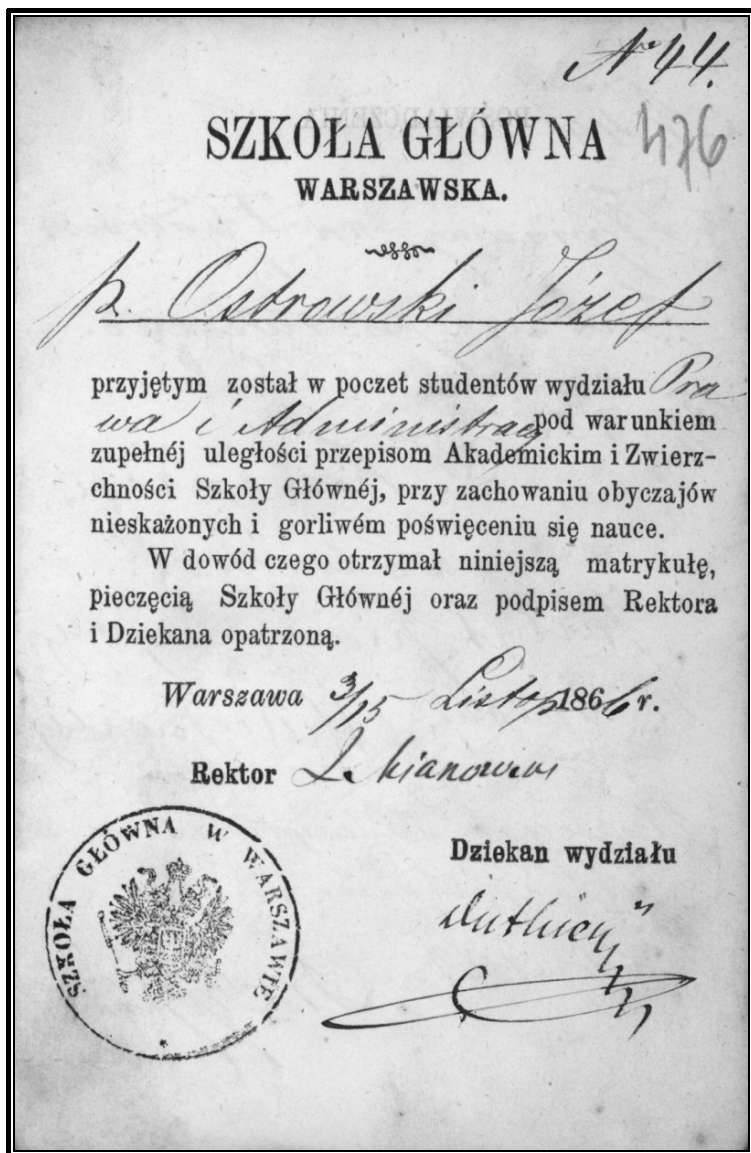 No 44.
476
SZKOŁA GŁÓWNA
WARSZAWSKA.
p. Ostrowski Józef
przyjętym został w poczet studentów wydziału Pra
wa i Administracyi pod warunkiem
zupełnéj uległości przepisom Akademickim i Zwierz-
chności Szkoły Głównéj, przy zachowaniu obyczajów
nieskażonych i gorliwém poświęceniu się nauce.
W dowód czego otrzymał niniejszą matrykułę,
pieczęcią Szkoły Głównéj oraz podpisem Rektora
i Dziekana opatrzoną.
Warszawa 3/15 Listop 1866 r.
Rektor
Dziekan wydziału
SZKOŁA GŁÓWNA W WARSZAWIE